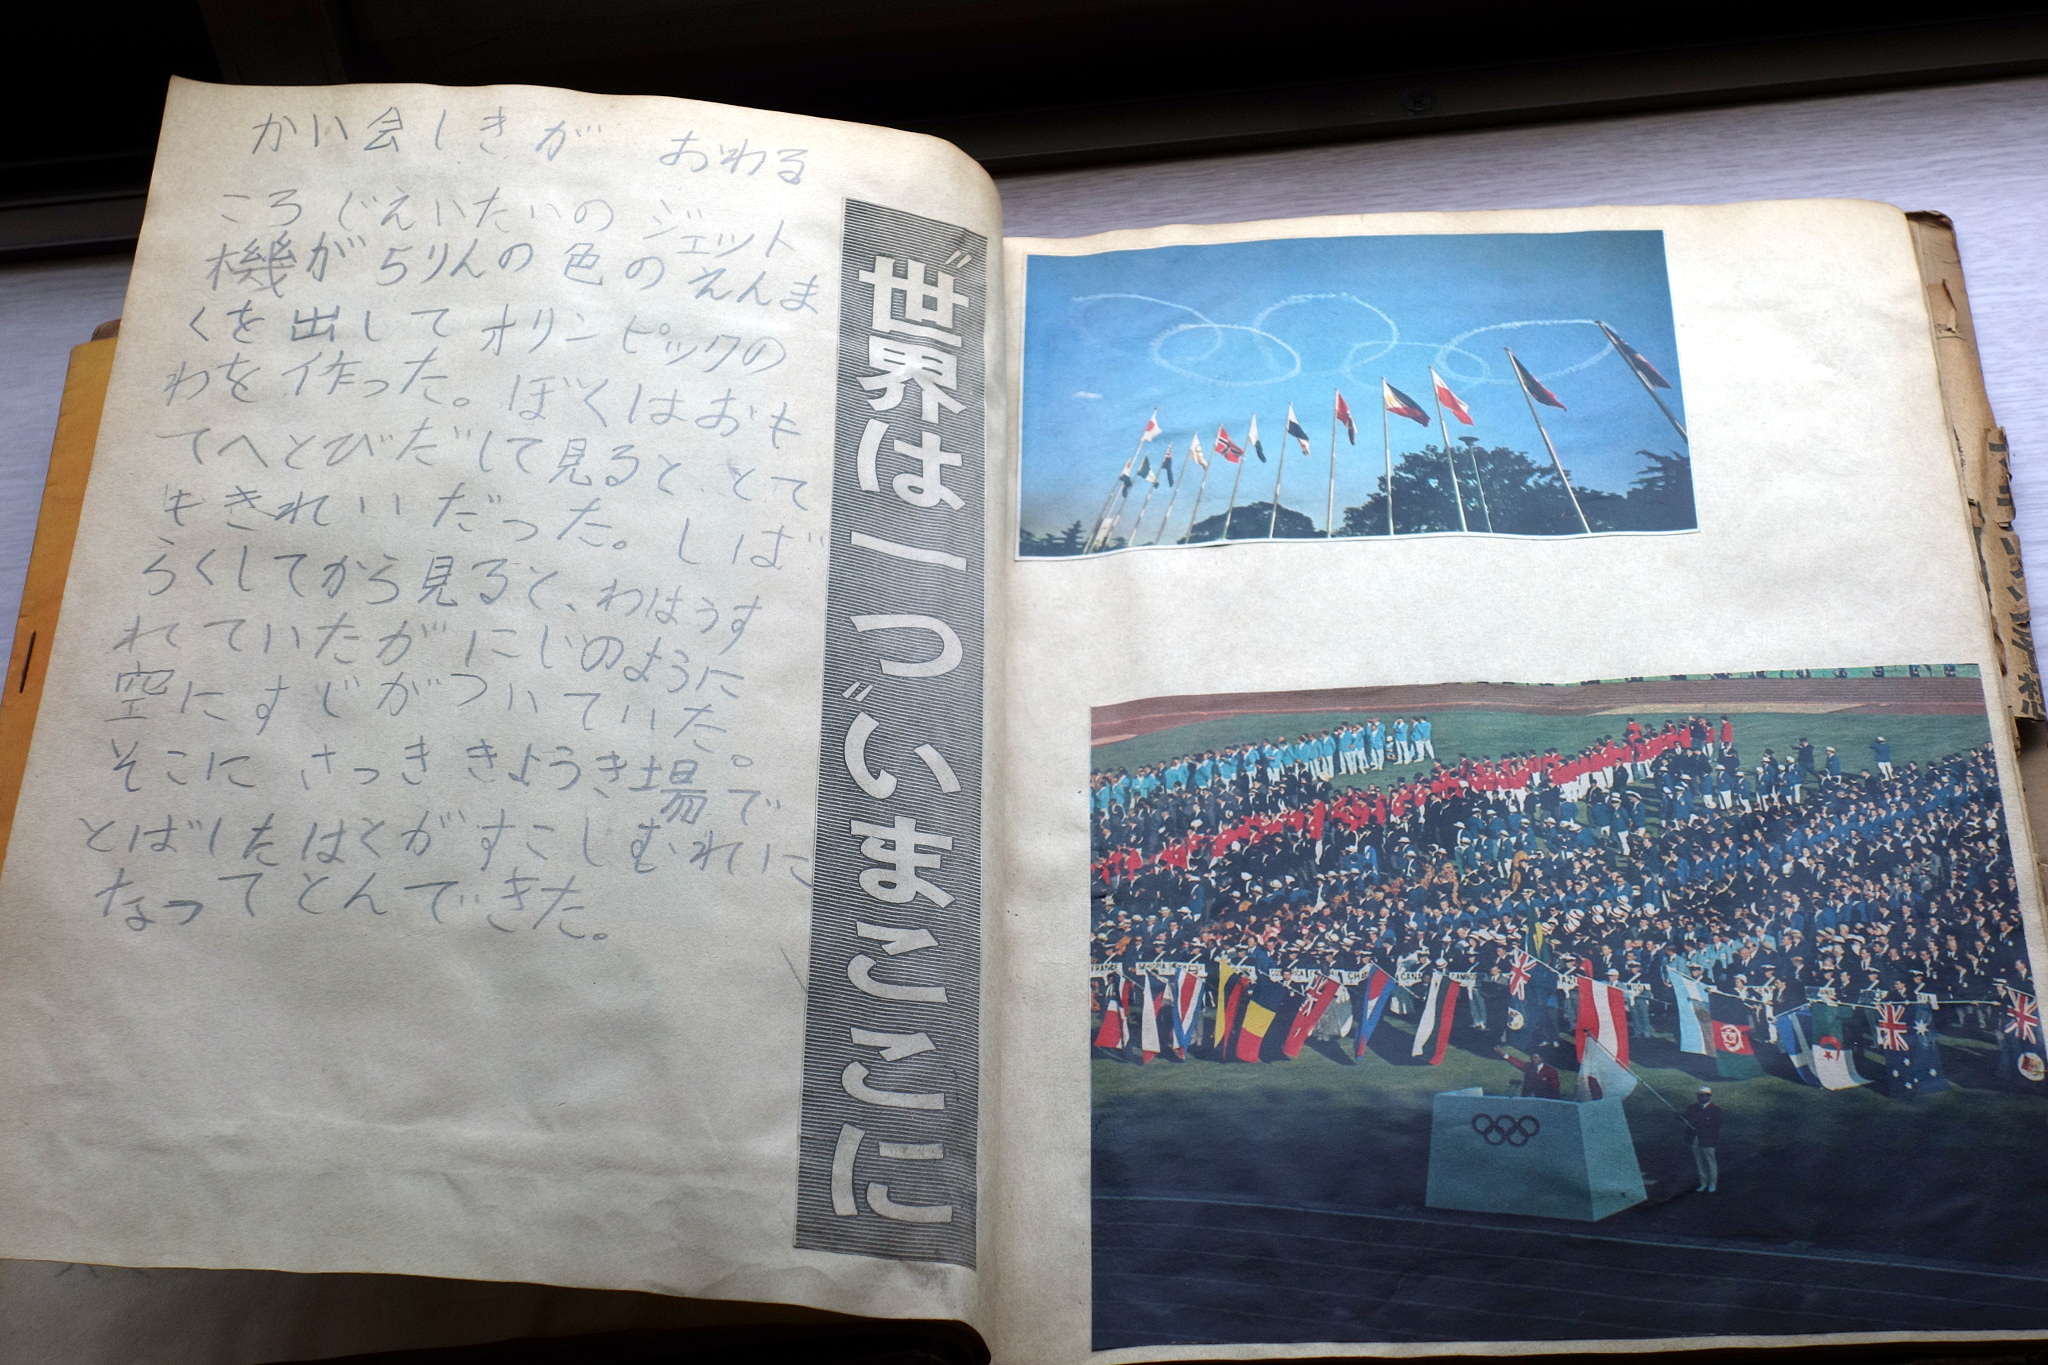 かい会しきが おわる
ころじえいたいのジェット
機が5りんの色のえんま
くを出してオリンピックの
わを作った。ぼくはおも
てへとびだして見ると、とて
もきれいだった。しば
らくしてから見ると、わはうす
れていたがにじのように
空にすじがついていた。
そこに さっききょうぎ場で
とばしたはとがすこしむれに
なってとんできた。
〝世界は一つ〟いまここに
FRANCE
CANA